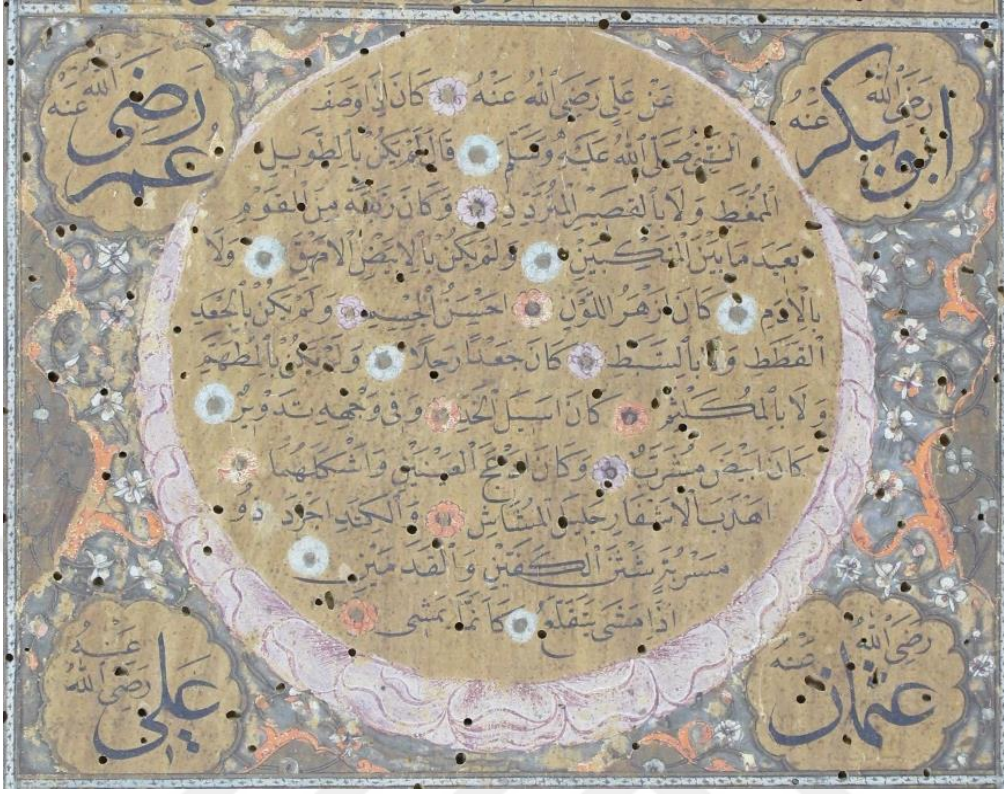 ابو بكر رضي الله عنه
عمر رضي الله عنه
عَنْ عَلِيٍّ رَضِيَ اللهُ عَنْهُ كَانَ إِذَا وَصَفَ
النَّبِيَّ صَلَّى اللهُ عَلَيْهِ وَسَلَّمَ قَالَ لَمْ يَكُنْ بِالطَّوِيلِ
الْمُمَّغِطِ وَلَا بِالْقَصِيرِ الْمُتَرَدِّدِ وَكَانَ رَبْعَةً مِنَ الْقَوْمِ
بَعِيدَ مَا بَيْنَ الْمَنْكِبَيْنِ وَلَمْ يَكُنْ بِالْأَبْيَضِ الْأَمْهَقِ وَلَا
بِالْآدَمِ كَانَ أَزْهَرَ اللَّوْنِ حَسَنَ الْجِسْمِ وَلَمْ يَكُنْ بِالْجَعْدِ
الْقَطَطِ وَلَا بِالسَّبِطِ كَانَ جَعْدًا رَجِلًا وَلَمْ يَكُنْ بِالْمُطَهَّمِ
وَلَا بِالْمُكَلْثَمِ كَانَ أَسِيلَ الْخَدِّ وَفِي وَجْهِهِ تَدْوِيرٌ
كَانَ أَبْيَضَ مُشْرَبٌ وَكَانَ أَدْعَجَ الْعَيْنَيْنِ وَأَشْكَلَهُمَا
أَهْدَبَ الْأَشْفَارِ جَلِيلَ الْمُشَاشِ وَالْكَتَدِ أَجْرَدَ ذُو
مَسْرُبَةٍ شَثْنَ الْكَفَّيْنِ وَالْقَدَمَيْنِ
إِذَا مَشَى يَتَقَلَّعُ كَأَنَّمَا يَمْشِي
عثمان رضي الله عنه
علي رضي الله عنه